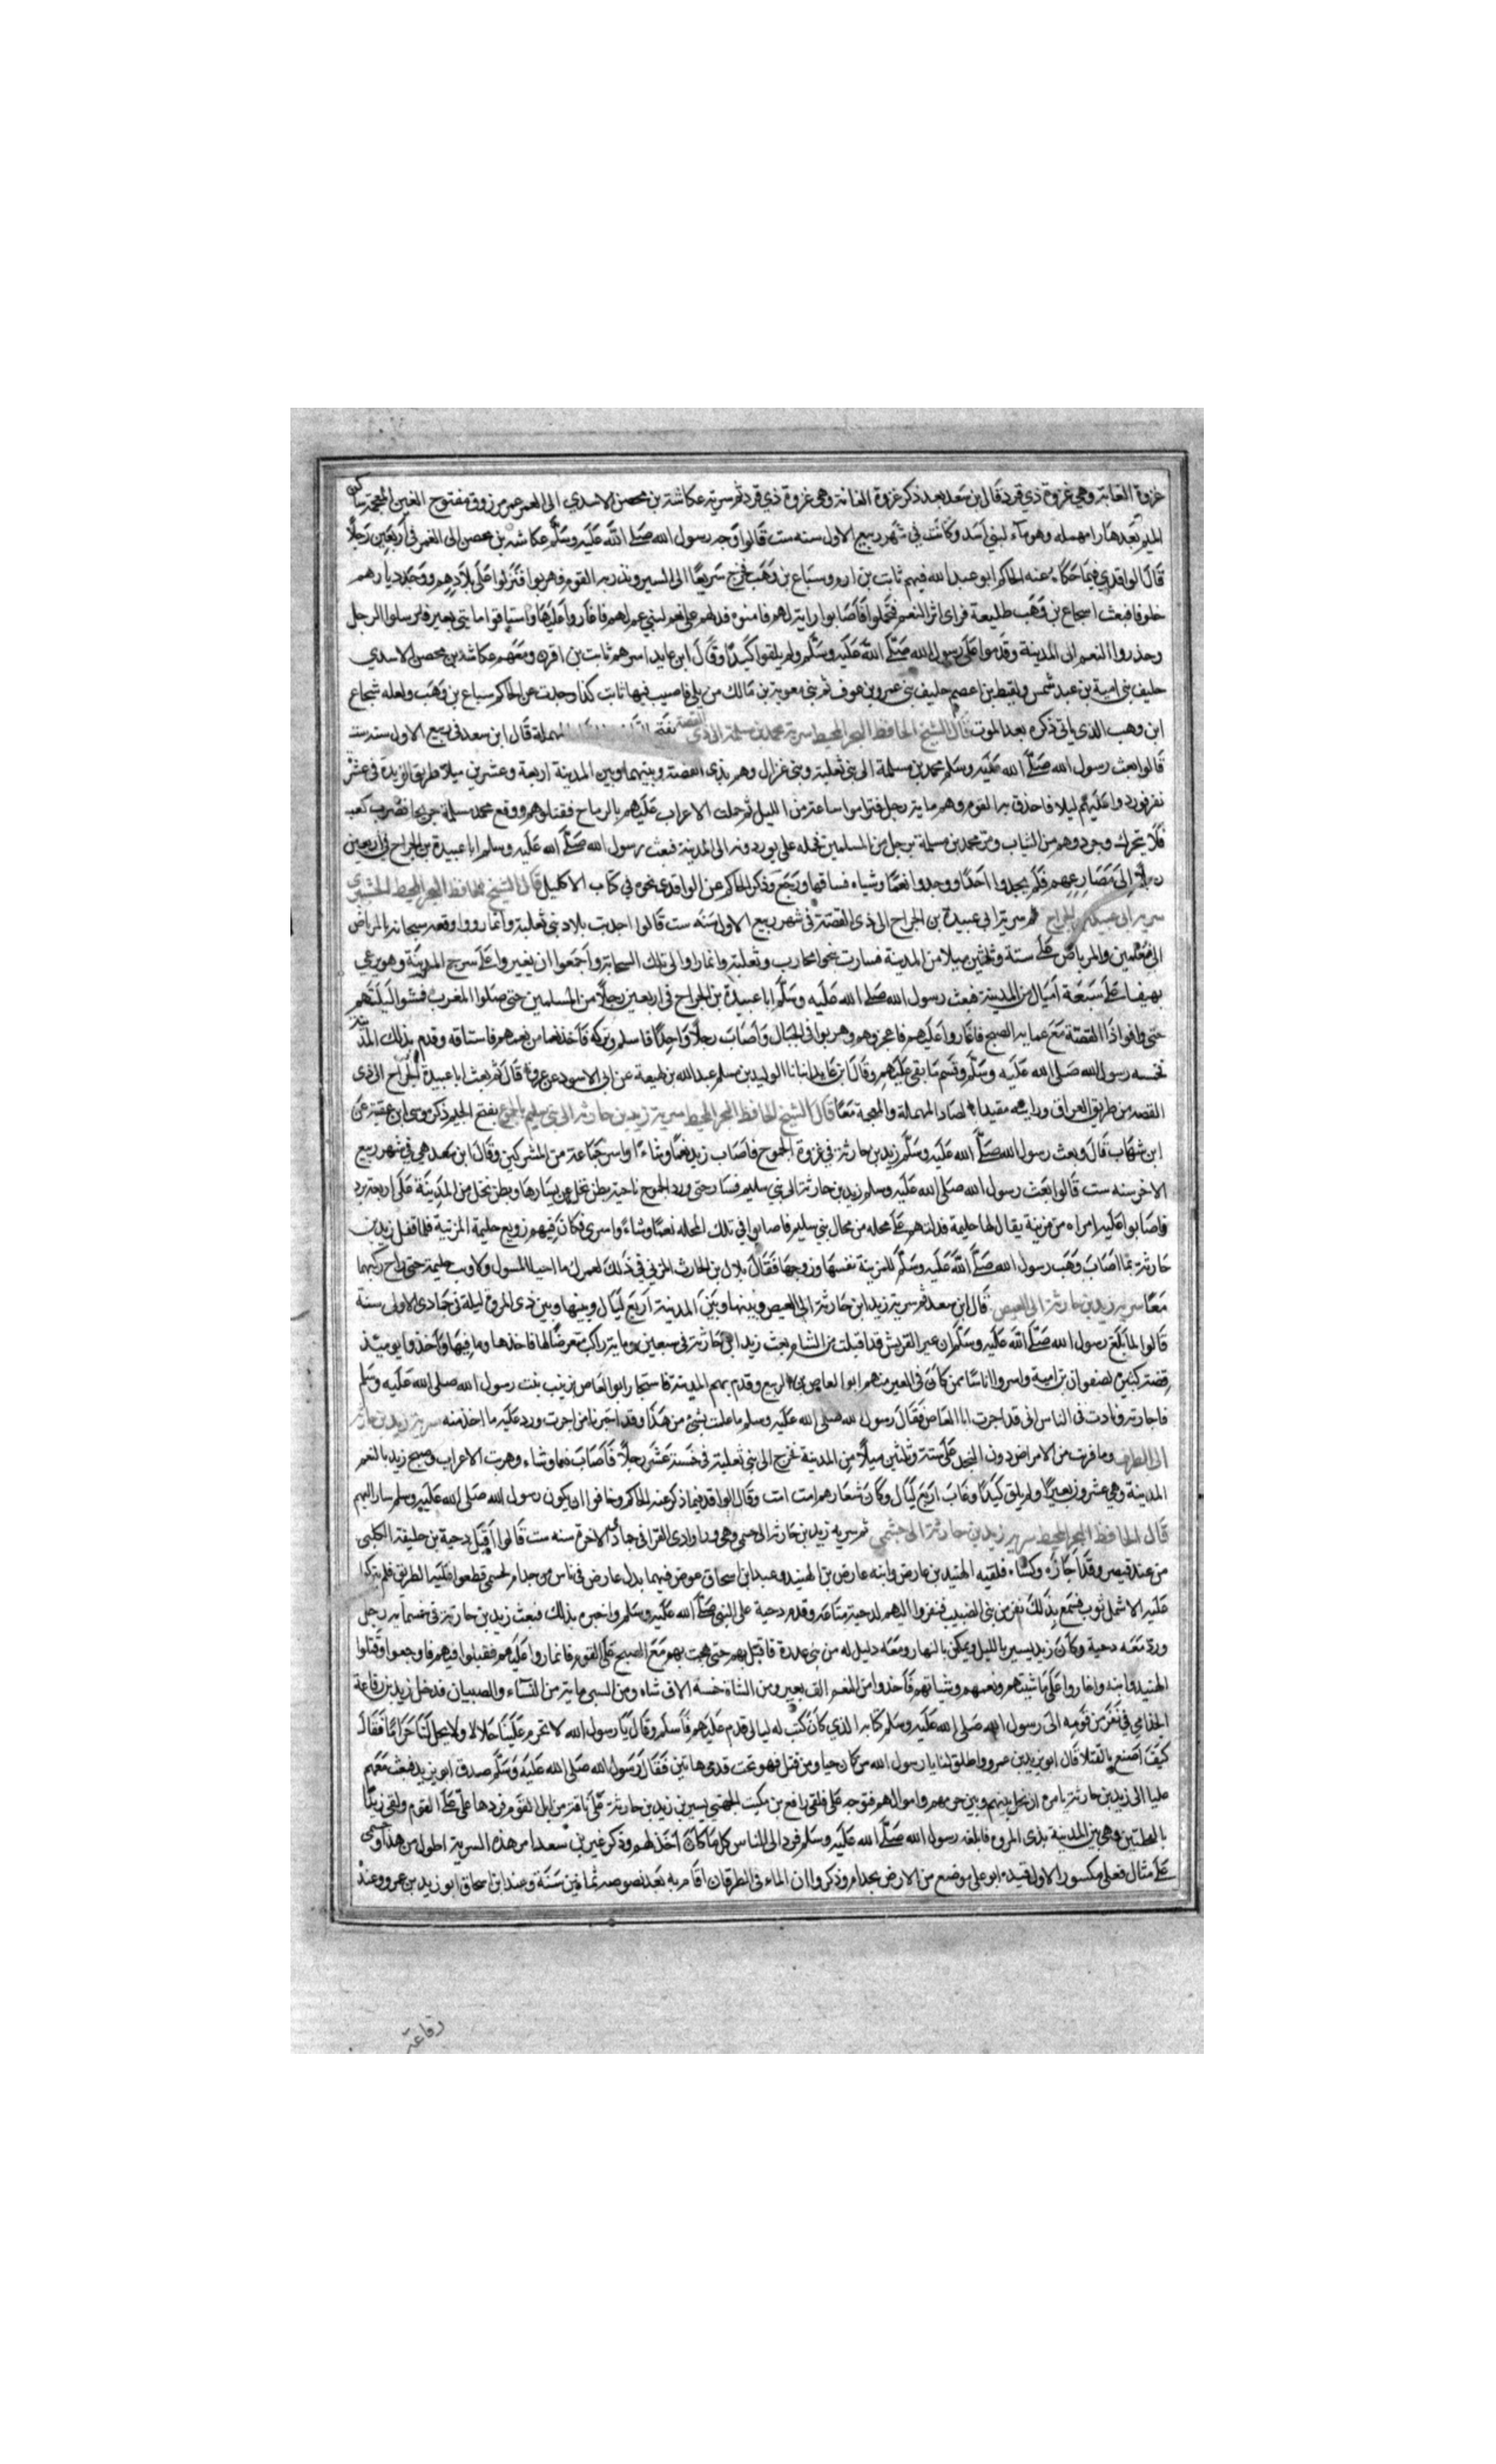 غزوة الغابة وهي غزوة ذي قرد قال ابن سعد بعد ذكر غزوة الغابة وهي غزوة ذي قرد ثم سرية عكاشة بن محصن الاسدي الى الغمر غمر مرزوق مفتوح الغين المعجمة ساكن
الميم بعدها را مهملة وهو ماء لبني اسد وكانت في شهر ربيع الاول سنه ست قالوا وجه رسول الله صلى الله عليه وسلم عكاشه بن محصن الى الغمر في اربعين رجلا
قال الواقدي فيما حكاه عنه الحاكم ابو عبد الله فيهم ثابت بن ارم وسباع بن وهب فخرج سريعا الى السير ونذر به القوم فهربوا فنزلوا على بلادهم ووجد ديارهم
خلوفا فبعث اسجاع بن وهب طليعة فراى اثر النعم فتحملوا فاصابوا رابية لهم فامنوه فدلهم على نعم لبني عم لهم فاغاروا عليها واستاقوا مايتي بعير فارسلوا الرجل
وحذروا النعم الى المدينة وقدموا على رسول الله صلى الله عليه وسلم ولم يلقوا كيدا وقال ابن عايد اميرهم ثابت بن اقرم ومعهم عكاشه بن محصن الاسدي
حليف بني امية بن عبد شمس ولقيط بن اعصم حليف بني عمرو بن عوف ثم بني معوية بن مالك من بلي فاصيب فيها ثابت كذا وجدت عن الحاكم سباع بن وهب ولعله شجاع
ابن وهب الذي ياتي ذكره بعد الموت قال الشيخ الحافظ البحر المحيط سرية محمد بن مسلمة الى ذي القصة مهملة قال ابن سعد في ربيع الاول سنة ست
قالوا بعث رسول الله صلى الله عليه وسلم محمد بن مسلمة الى بني ثعلبة وبني غزال وهم بذي القصة وبينهما وبين المدينة اربعة وعشرين ميلا طريق الربذة في عشرة
نفر فوردوا عليهم ليلا فاحذق به القوم وهم ماية رجل فتراموا ساعة من الليل ثم حملت الاعراب عليهم بالرماح فقتلوهم ووقع محمد بن مسلمة جريحا فضرب كعبه
فلا يتحرك وجردوهم من الثياب ومر بمحمد بن مسلمة رجل من المسلمين فحمله على يورد فنه الى المدينة فبعث رسول الله صلى الله عليه وسلم ابا عبيدة بن الجراح في اربعين
رجلا الى مصارعهم فلم يجدوا احدا ووجدوا نعما وشياه فساقها ورجع وذكر الحاكم عن الواقدي نحوه في كتاب الاكليل قال الشيخ الحافظ البحر المحيط
سرية ابي عبيدة بن الجراح ثم سرية ابي عبيدة بن الجراح الى ذي القصة في شهر ربيع الاول سنه ست قالوا اجدبت بلاد بني ثعلبة وانمار ووقعت سحابة بالمراض
الى تغلمين والمراض على ستة وثلثين ميلا من المدينة فسارت بنو محارب وثعلبة وانمار الى تلك السحابة واجمعوا ان يغيروا على سرح المدينة وهو يرعى
بهيفا على سبعة اميال من المدينة فبعث رسول الله صلى الله عليه وسلم ابا عبيدة بن الجراح في اربعين رجلا من المسلمين حتى صلوا المغرب فمشوا اليلتهم
حتى وافوا ذا القصة مع عماية الصبح فاغاروا عليهم فاعجزوهم وهربوا في الجبال واصاب رجلا واحدا فاسلم وتركه فاخذ نعما من نعمهم فاستاقه وقدم بذلك المدينة
فخمسه رسول الله صلى الله عليه وسلم وقسم ما بقي عليهم وقال ابن عايد انبانا الوليد بن مسلم عبد الله بن لهيعة عن ابي الاسود عن عروة قال ثم بعث ابا عبيدة بن الجراح الى ذي
القصة من طريق العراق ورايته مقيدا بالصاد المهملة والمعجمة معا قال الشيخ الحافظ البحر المحيط سرية زيد بن حارثة الى بني سليم بالجموم بفتح الجيم ذكر موسى ابن عقبة عن
ابن شهاب قال وبعث رسول الله صلى الله عليه وسلم زيد بن حارثة في غزوة الجموح فاصاب زيد نعما وشاءا واسر جماعة من المشركين وقال ابن سعد هي في شهر ربيع
الاخر سنه ست قالوا بعث رسول الله صلى الله عليه وسلم زيد بن حارثة الى بني سليم فسار حتى ورد الجموح ناحية بطن نخل عن يسارها وبطن نخل من المدينة على اربعة برد
فاصابوا عليه امراه من مزينة يقال لها حليمة فدلتهم على محله من محال بني سليم فاصابوا في تلك المحله نعما وشاءا واسرى فكان فيهم زوج حليمة المزنية فلما قفل زيد بن
حارثة بما اصاب وهب رسول الله صلى الله عليه وسلم للمزينة نفسها وزوجها فقال بلال بن الحارث المزني في ذلك لعمرك ما احيا المسول ولا ونت حليمة حتى راح ركبهما
معا سرية زيد بن حارثة الى العيص قال ابن سعد ثم سرية زيد ابن حارثة الى العيص وبينها وبين المدينة اربع ليال وبينها وبين ذي المروة ليلة في جمادى الاولى سنة
قالوا لما بلغ رسول الله صلى الله عليه وسلم ان عير القريش قد اقبلت من الشام بعث زيد ابن حارثة في سبعين وماية راكب تعرض لها فاخذها وما فيها واخذوا يوميذ
فضة كثيرة لصفوان بن امية واسروا اناسا ممن كان في العير منهم ابو العاص بن الربيع وقدم بهم المدينة فاستجار ابو العاص زينب بنت رسول الله صلى الله عليه وسلم
فاجارته ونادت في الناس اني قد اجرت ابا العاص فقال رسول الله صلى الله عليه وسلم ما علمت بشي من هذا وقد اجرنا من اجرت ورد عليه ما اخذ منه سرية زيد بن حارثة
الى الطرف وما قربت من الامراض دون النخيل على ستة وثلثين ميلا من المدينة فخرج الى بني ثعلبة في خمسة عشر رجلا فاصاب نعما وشاء وهربت الاعراب وصبح زيد بالنعم
المدينة وهي عشرون بعيرا ولم يلق كيدا وغاب اربع ليال وكان شعارهم امت امت وقال الواقدي فيما ذكر عنه الحاكم وخافوا ان يكون رسول الله صلى الله عليه وسلم سار اليهم
قال الحافظ البحر المحيط سرية زيد بن حارثة الى حسمى ثم سريه زيد بن حارثة الى حسمى وهي ورا وادي القرى في جمادى الاخرة سنه ست قالوا اقبل دحية بن خليفة الكلبي
من عند قيصر وقد اجازه وكساه فلقيه الهنيد بن عارض وابنه عارض بن الهنيد وعند ابن اسحاق عوض فيهما بدل عارض في ناس من جذام بحسمى قطعوا عليه الطريق فلم يتركوا
عليه الا شمل ثوب فسمع بذلك نفر من بني الضبيب فنفروا اليهم لدحية متاعه وقدم دحية على النبي صلى الله عليه وسلم واخبره بذلك فبعث زيد بن حارثة في خمسماية رجل
ورد معه دحية وكان زيد يسير بالليل ويمكن بالنهار ومعه دليل له من بني عذرة فاقبل بهم حتى هجم بهم مع الصبح على القوم فاغاروا عليهم فقتلوا فيهم فاوجعوا وقتلوا
الهنيد وابنه واغاروا على ماشيتهم ونعمهم ونسائهم فاخذوا من النعم الف بعير ومن الشاة خمسة الاف شاه ومن السبي ماية من النساء والصبيان فدخل زيد بن رفاعة
الجذامي في نفر من قومه الى رسول الله صلى الله عليه وسلم كتابه الذي كان كتب له ليالي قدم عليهم فاسلم وقال يا رسول الله لا تحرم علينا حلالا ولا يحل لنا حراما فقال
كيف اصنع بالقتلا قال ابو زيد بن عمرو واطلق لنا يا رسول الله من كان حيا ومن قتل فهو تحت قدمي هاتين فقال رسول الله صلى الله عليه وسلم صدق ابو زيد فبعث معهم
عليا الى زيد بن حارثة يامره ان يخلي بينهم وبين حرمهم واموالهم فتوجه على فلقي رافع بن مكيث الجهني بسير بن زيد بن حارثة على ناقة من ابل القوم فردها علي على القوم ولقي زيدا
بالفحلتين وهي بين المدينة بذي المروه فابلغه رسول الله صلى الله عليه وسلم فرد الى الناس كل ما كان اخذ لهم وذكر غير بن سعد امر هذه السرية اطول من هذا وحسمى
على مثال فعلى مكسور الاول قيده ابو علي موضع من الارض بجذام وذكروا ان الماء في الطرقان اقام به بعد نصوصه ثمانين سنة وعند ابن اسحاق ابو زيد بن عمرو وعند
رفاعة